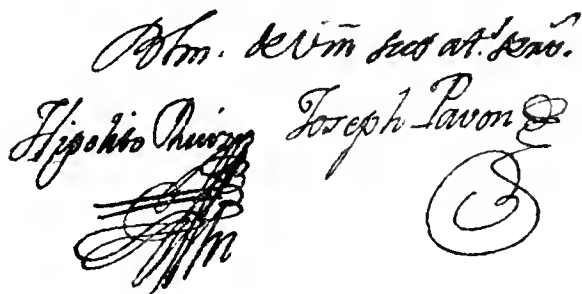 Blm. de Vm̃ sus at.ˢ serv.
Hipolito Ruiz Joseph Pavon